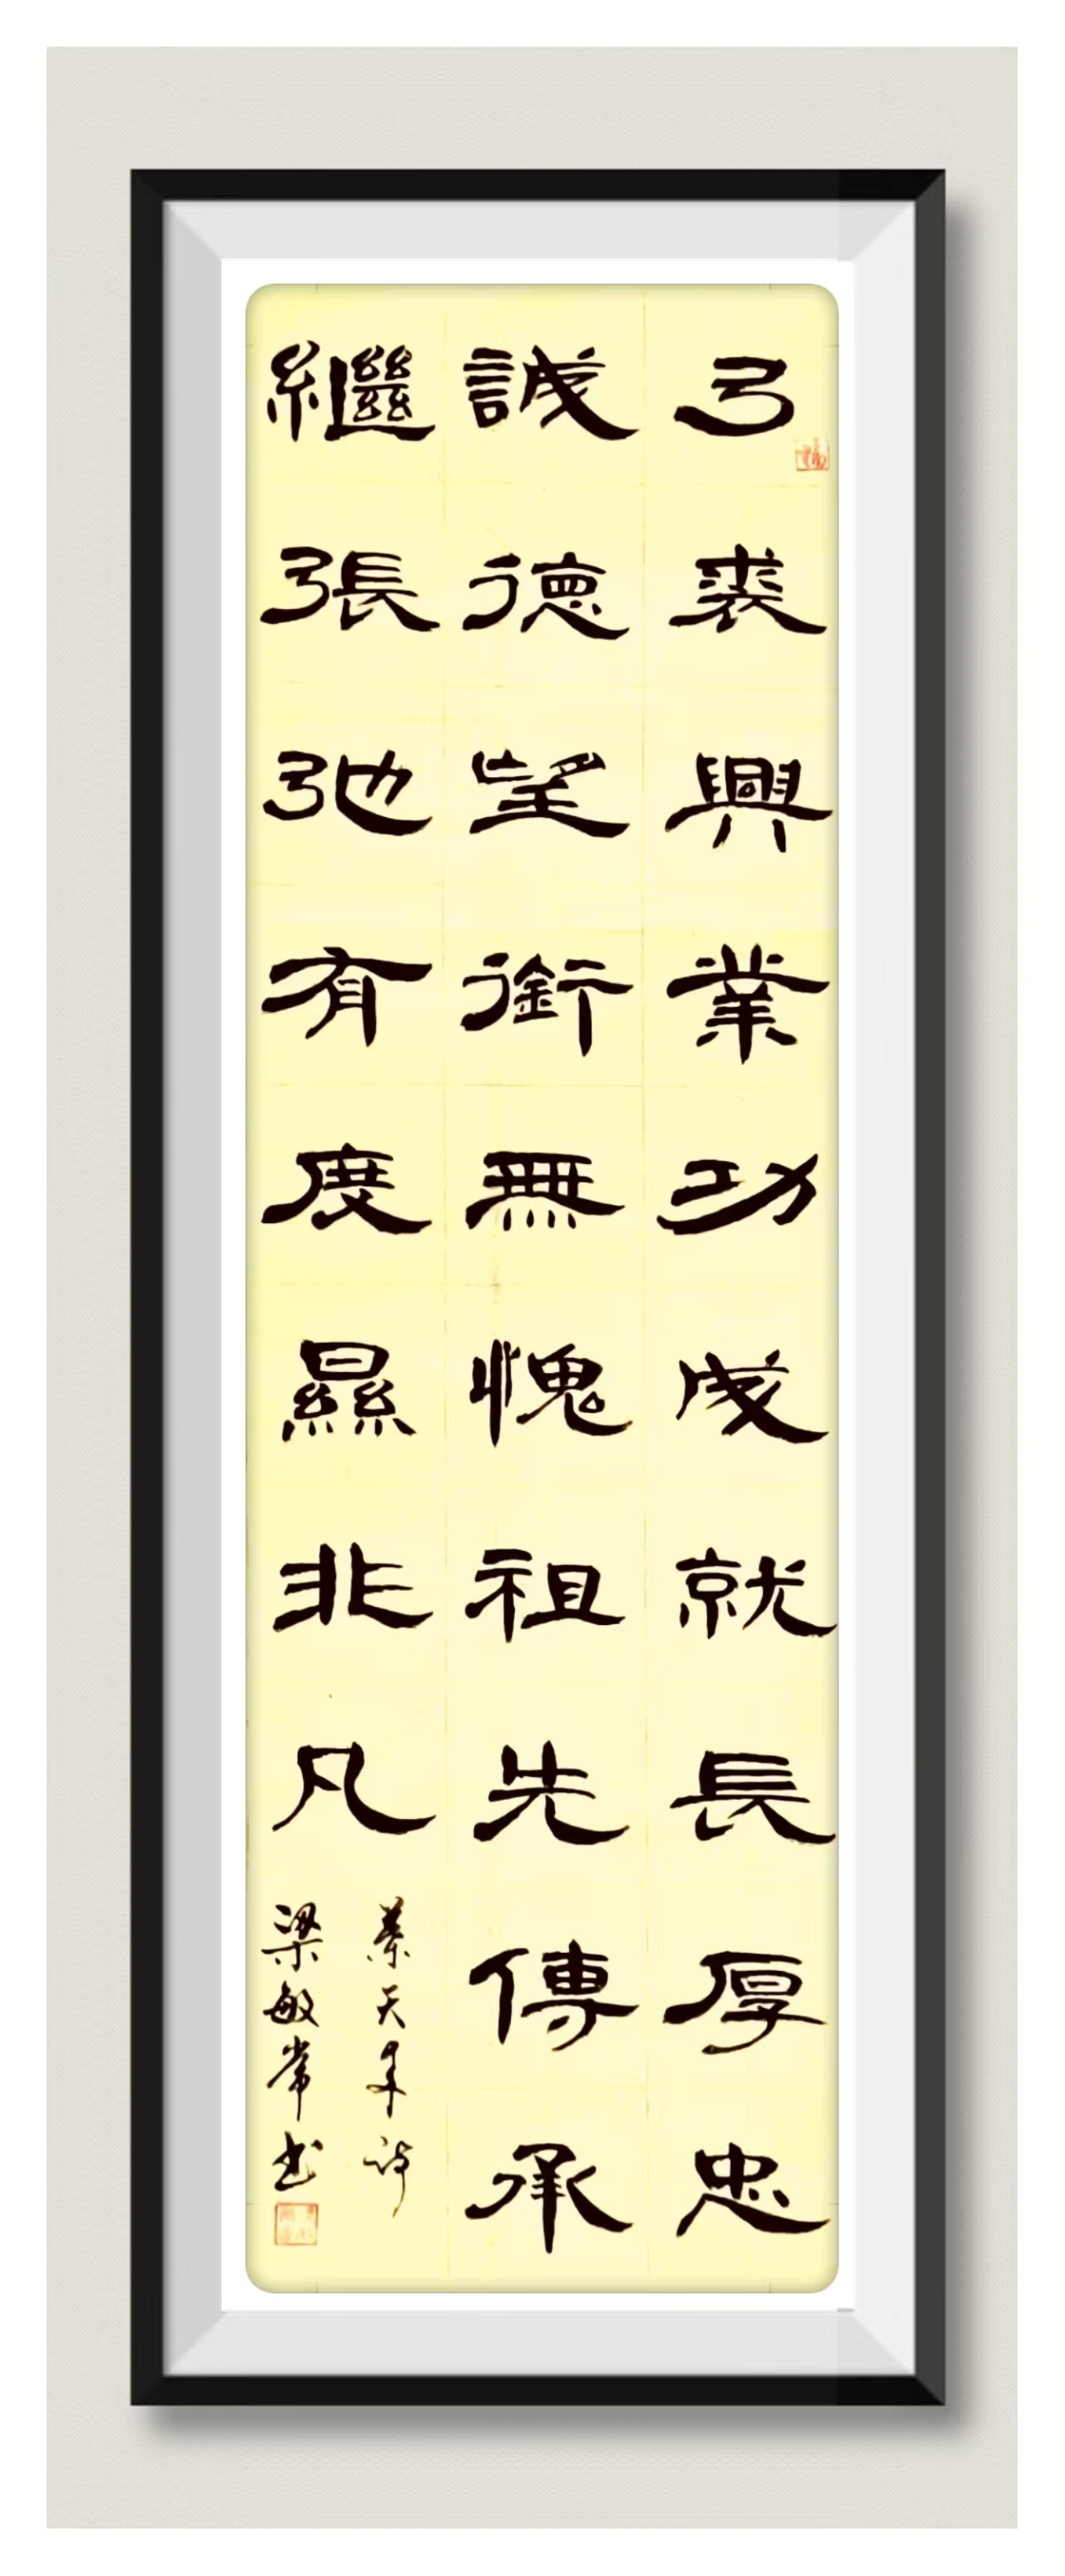 弓裘興業功成就長厚忠
誠德望銜無愧祖先傳承
繼張弛有度㬎非凡
蔡天來詩
梁敏常书